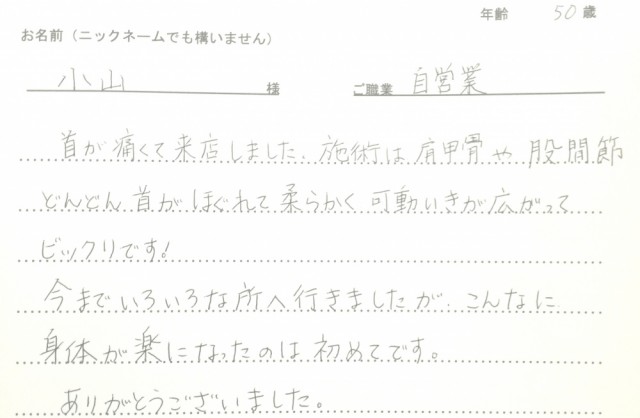 年齢 50 歳
お名前（ニックネームでも構いません）
小山 様 ご職業 自営業
首が痛くて来店しました。施術は肩甲骨や股間節
どんどん首がほぐれて柔らかく可動いきが広がって
ビックリです!
今までいろいろな所へ行きましたが、こんなに
身体が楽になったのは初めてです。
ありがとうございました。